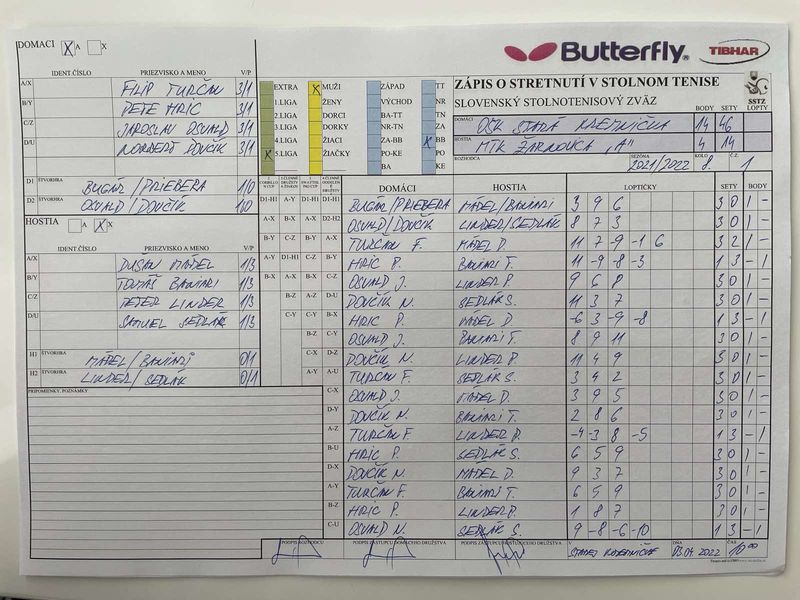 DOMACI X A X
Butterfly
TIBHAR
IDENT.ČÍSLO PRIEZVISKO A MENO V/P
A/X FILIP TURČÁN 3/1
B/Y PETE HRIC 3/1
C/Z JAROSLAV OSVALD 3/1
D/U NORBERT DOVČÍK 3/1
D1 ŠTVORHRA BUGÁR/PRIEBERA 1/0
D2 ŠTVORHRA OSVALD/DOVČÍK 1/0
EXTRA X MUŽI ZÁPAD TT
1.LIGA ŽENY VÝCHOD NR
2.LIGA DORCI BA-TT TN
3.LIGA DORKY NR-TN ZA
4.LIGA ŽIACI ZA-BB X BB
X 5.LIGA ŽIAČKY PO-KE PO
BA KE
ZÁPIS O STRETNUTÍ V STOLNOM TENISE
SLOVENSKÝ STOLNOTENISOVÝ ZVÄZ
SSTZ
BODY SETY LOPTY
DOMÁCI OŠK STARÁ KREMNIČKA 14 46
HOSTIA MTK ŽARNOVICA "A" 4 14
ROZHODCA SEZÓNA 2021/2022 KOLO 8. Č.Z. 1
HOSTIA A X X
IDENT.ČÍSLO PRIEZVISKO A MENO V/P
A/X DUŠAN MÁDEL 1/3
B/Y TOMÁŠ BANIARI 1/3
C/Z PETER LINDER 1/3
D/U SAMUEL SEDLÁK 1/3
H1 ŠTVORHRA MÁDEL/BANIARI 0/1
H2 ŠTVORHRA LINDER/SEDLÁK 0/1
PRIPOMIENKY, POZNÁMKY
DOMÁCI HOSTIA LOPTIČKY SETY BODY
D1-H1 A-Y D1-H1 D1-H1 BUGÁR/PRIEBERA MÁDEL/BANIARI 3 9 6 3 0 1 -
A-X B-X A-X D2-H2 OSVALD/DOVČÍK LINDER/SEDLÁK 8 7 3 3 0 1 -
B-Y C-Z B-Y A-X TURČÁN F. MÁDEL D. 11 7 -9 -1 6 3 2 1 -
A-Y D1-H1 C-Z B-Y HRIC P. BANIARI T. 11 -9 -8 -3 1 3 - 1
B-X A-X B-X C-Z OSVALD J. LINDER P. 9 6 8 3 0 1 -
B-Z A-Z D-U DOVČÍK N. SEDLÁK S. 11 3 7 3 0 1 -
C-Y C-Y B-X HRIC P. MÁDEL D. -6 3 -9 -8 1 3 - 1
B-Z C-Y OSVALD J. BANIARI T. 8 9 11 3 0 1 -
C-X D-Z DOVČÍK N. LINDER P. 11 4 9 3 0 1 -
A-Y A-U TURČÁN F. SEDLÁK S. 3 4 2 3 0 1 -
C-X OSVALD J. MÁDEL D. 3 9 5 3 0 1 -
D-Y DOVČÍK N. BANIARI T. 2 8 6 3 0 1 -
A-Z TURČÁN F. LINDER P. -4 -3 8 -5 1 3 - 1
B-U HRIC P. SEDLÁK S. 6 5 9 3 0 1 -
D-X DOVČÍK N. MÁDEL D. 9 3 7 3 0 1 -
A-Y TURČÁN F. BANIARI T. 6 5 9 3 0 1 -
B-Z HRIC P. LINDER P. 1 8 7 3 0 1 -
C-U OSVALD N. SEDLÁK S. 9 -8 -6 -10 1 3 - 1
PODPIS ROZHODCU PODPIS ZÁSTUPCU DOMÁCEHO DRUŽSTVA PODPIS ZÁSTUPCU HOSŤUJÚCEHO DRUŽSTVA V STAREJ KREMNIČKE DŇA 03.04.2022 ČAS 10 00